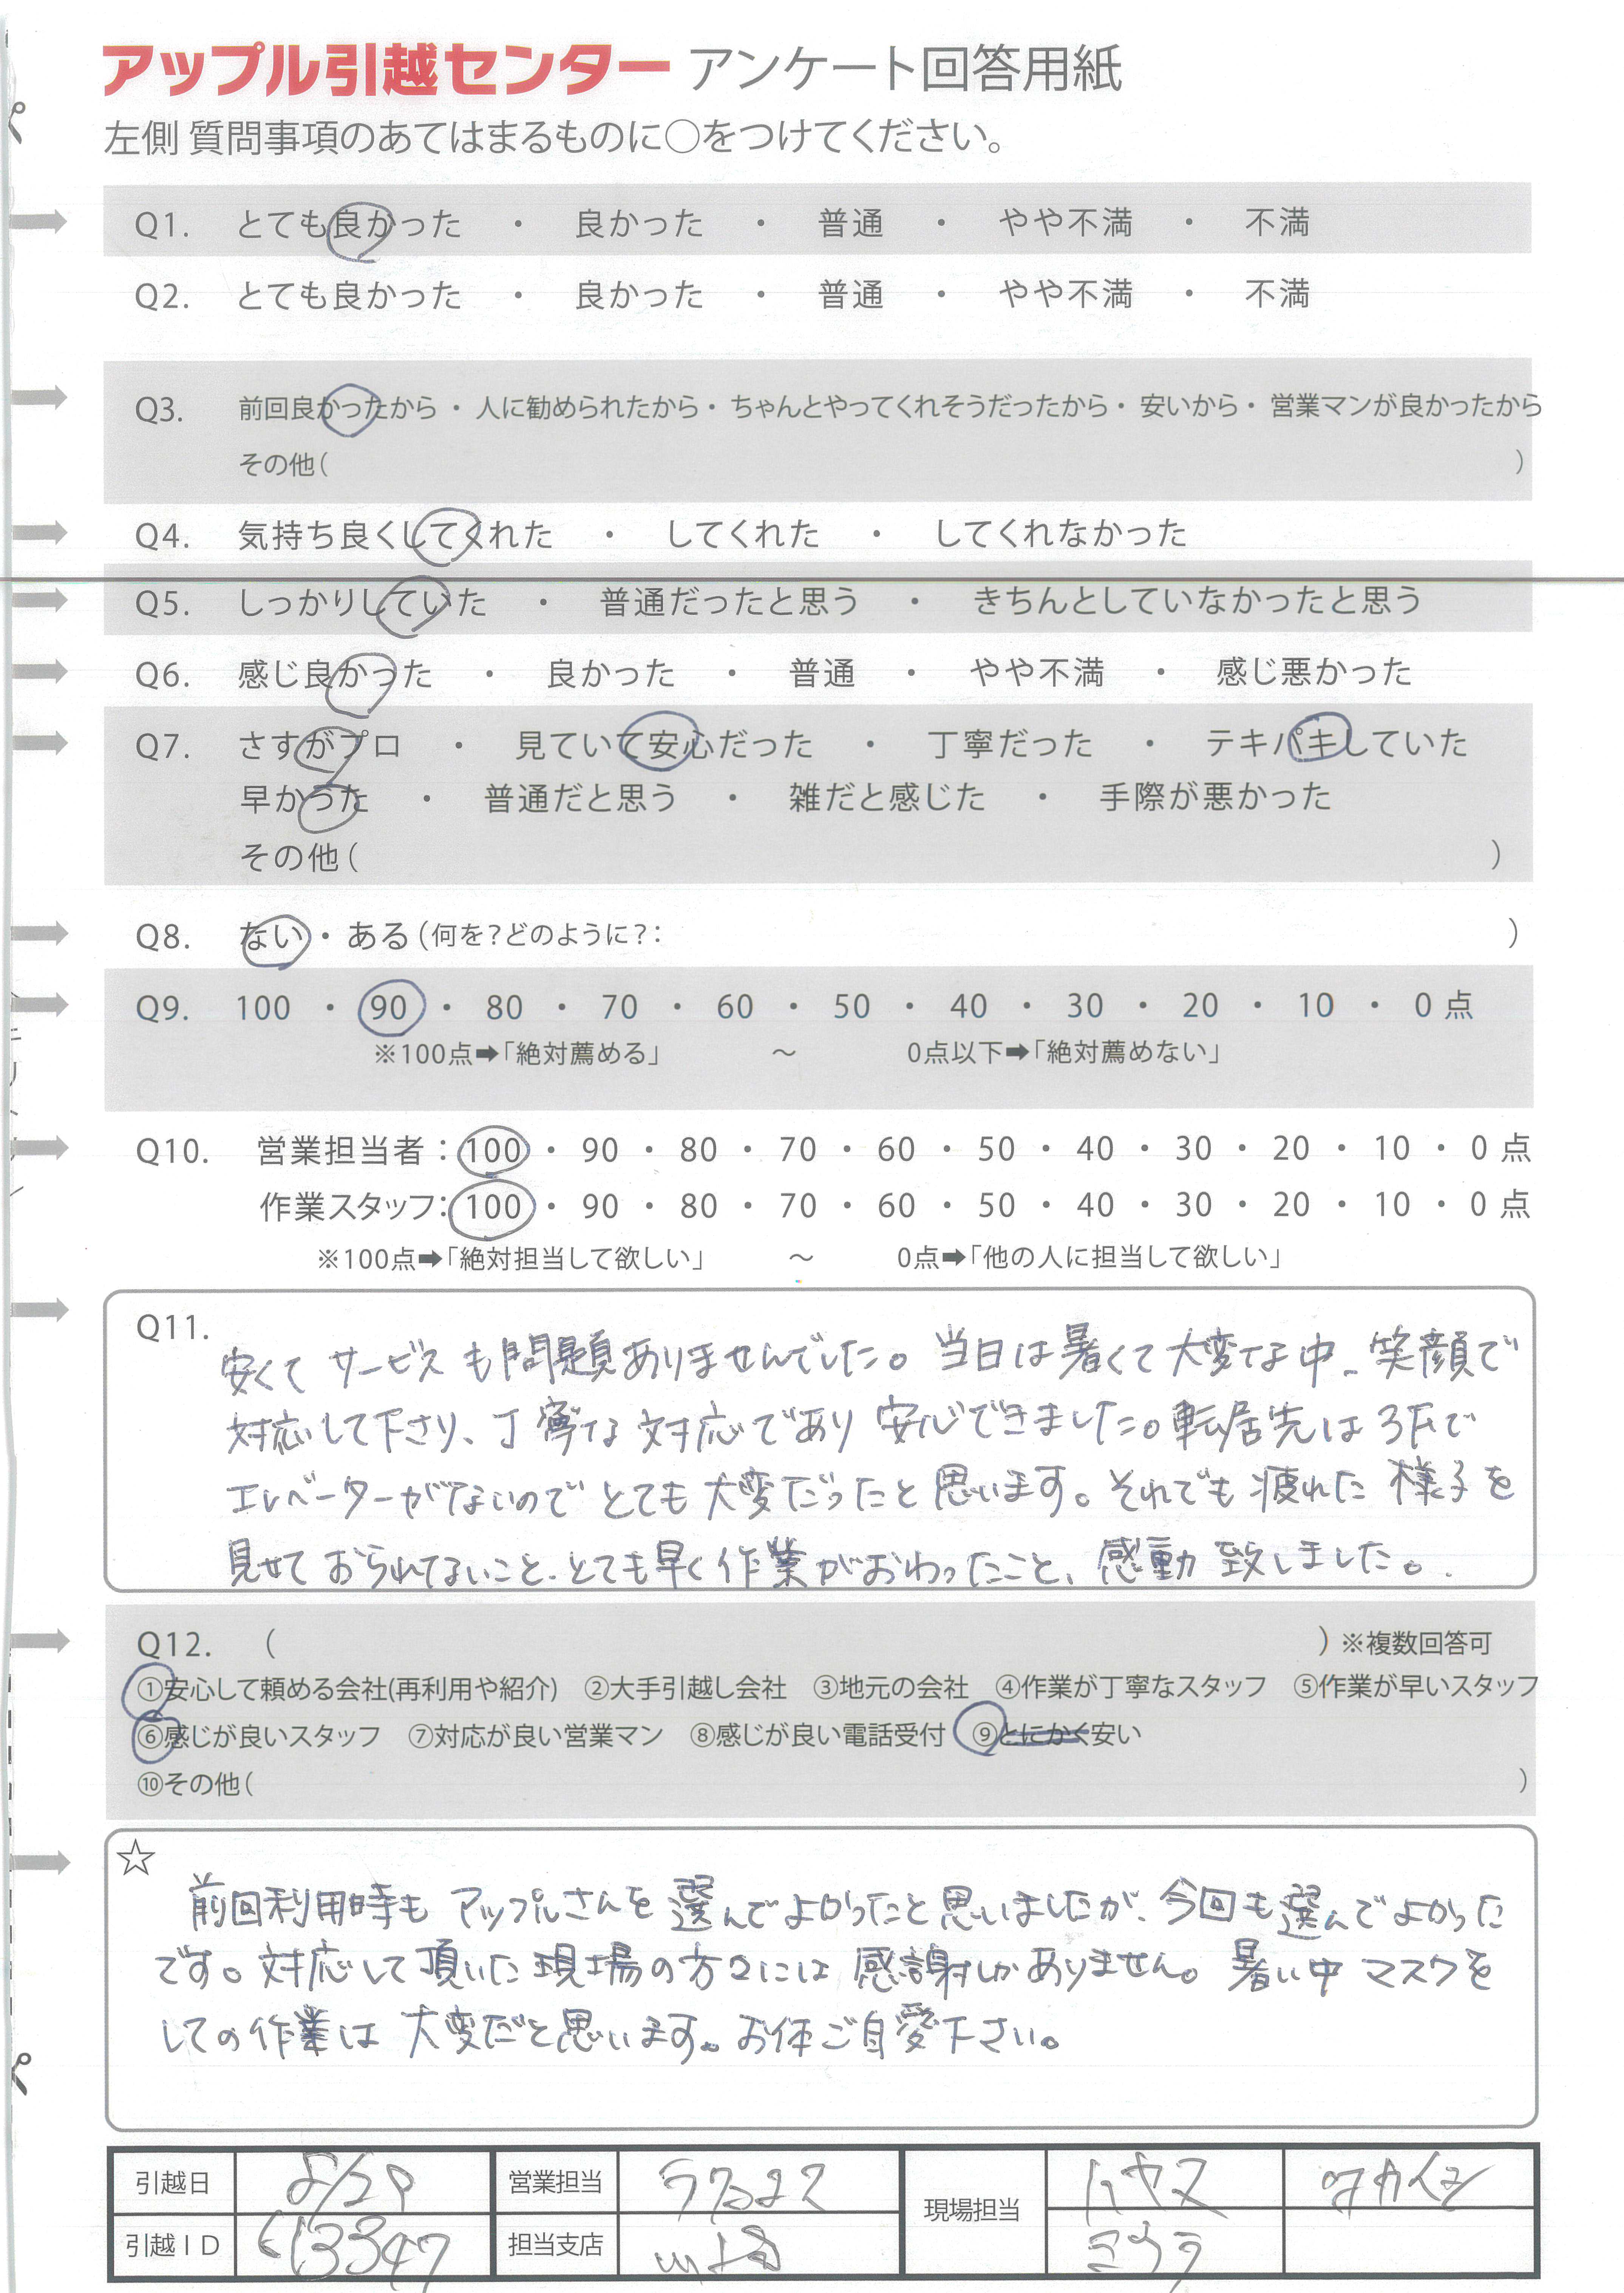 アップル引越センター アンケート回答用紙
左側 質問事項のあてはまるものに○をつけてください。
Q1. とても良かった ・ 良かった ・ 普通 ・ やや不満 ・ 不満
Q2. とても良かった ・ 良かった ・ 普通 ・ やや不満 ・ 不満
Q3. 前回良かったから ・ 人に勧められたから ・ ちゃんとやってくれそうだったから ・ 安いから ・ 営業マンが良かったから
その他( )
Q4. 気持ち良くしてくれた ・ してくれた ・ してくれなかった
Q5. しっかりしていた ・ 普通だったと思う ・ きちんとしていなかったと思う
Q6. 感じ良かった ・ 良かった ・ 普通 ・ やや不満 ・ 感じ悪かった
Q7. さすがプロ ・ 見ていて安心だった ・ 丁寧だった ・ テキパキしていた
早かった ・ 普通だと思う ・ 雑だと感じた ・ 手際が悪かった
その他( )
Q8. ない ・ ある (何を?どのように?: )
Q9. 100 ・ 90 ・ 80 ・ 70 ・ 60 ・ 50 ・ 40 ・ 30 ・ 20 ・ 10 ・ 0 点
※100点➡「絶対薦める」 ～ 0点以下➡「絶対薦めない」
Q10. 営業担当者 : 100 ・ 90 ・ 80 ・ 70 ・ 60 ・ 50 ・ 40 ・ 30 ・ 20 ・ 10 ・ 0 点
作業スタッフ: 100 ・ 90 ・ 80 ・ 70 ・ 60 ・ 50 ・ 40 ・ 30 ・ 20 ・ 10 ・ 0 点
※100点➡「絶対担当して欲しい」 ～ 0点➡「他の人に担当して欲しい」
Q11.
安くて サービスも問題ありませんでした。当日は暑くて大変な中、笑顔で
対応して下さり、丁寧な対応であり 安心できました。転居先は3Fで
エレベーターがないので とても大変だったと思います。それでも疲れた様子を
見せておられてないこと、とても早く作業がおわったこと、感動致しました。
Q12. ( ) ※複数回答可
①安心して頼める会社(再利用や紹介) ②大手引越し会社 ③地元の会社 ④作業が丁寧なスタッフ ⑤作業が早いスタッフ
⑥感じが良いスタッフ ⑦対応が良い営業マン ⑧感じが良い電話受付 ⑨とにかく安い
⑩その他( )
☆
前回利用時も アップルさんを選んでよかったと思いましたが、今回も選んでよかった
です。対応して頂いた現場の方々には感謝しかありません。暑い中マスクを
しての作業は大変だと思います。お体ご自愛下さい。
引越日 営業担当 現場担当 ハヤス
引越ID 613347 担当支店 ミウラ